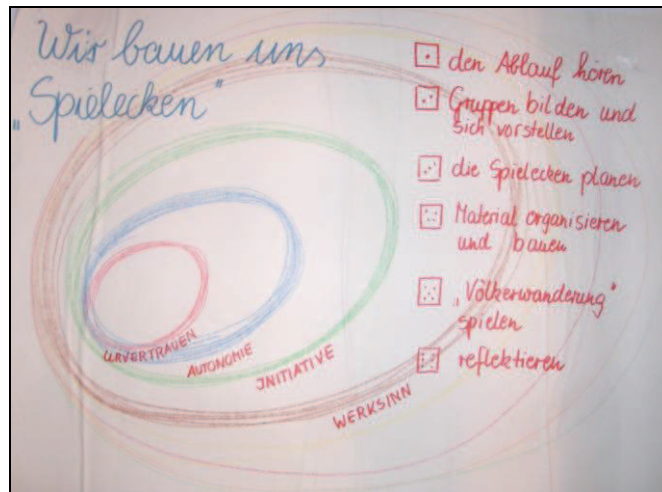 Wir bauen uns
„Spielecken"
den Ablauf hören
Gruppen bilden und
sich vorstellen
die Spielecken planen
Material organisieren
und bauen
„Völkerwanderung"
spielen
reflektieren
URVERTRAUEN
AUTONOMIE
INITIATIVE
WERKSINN